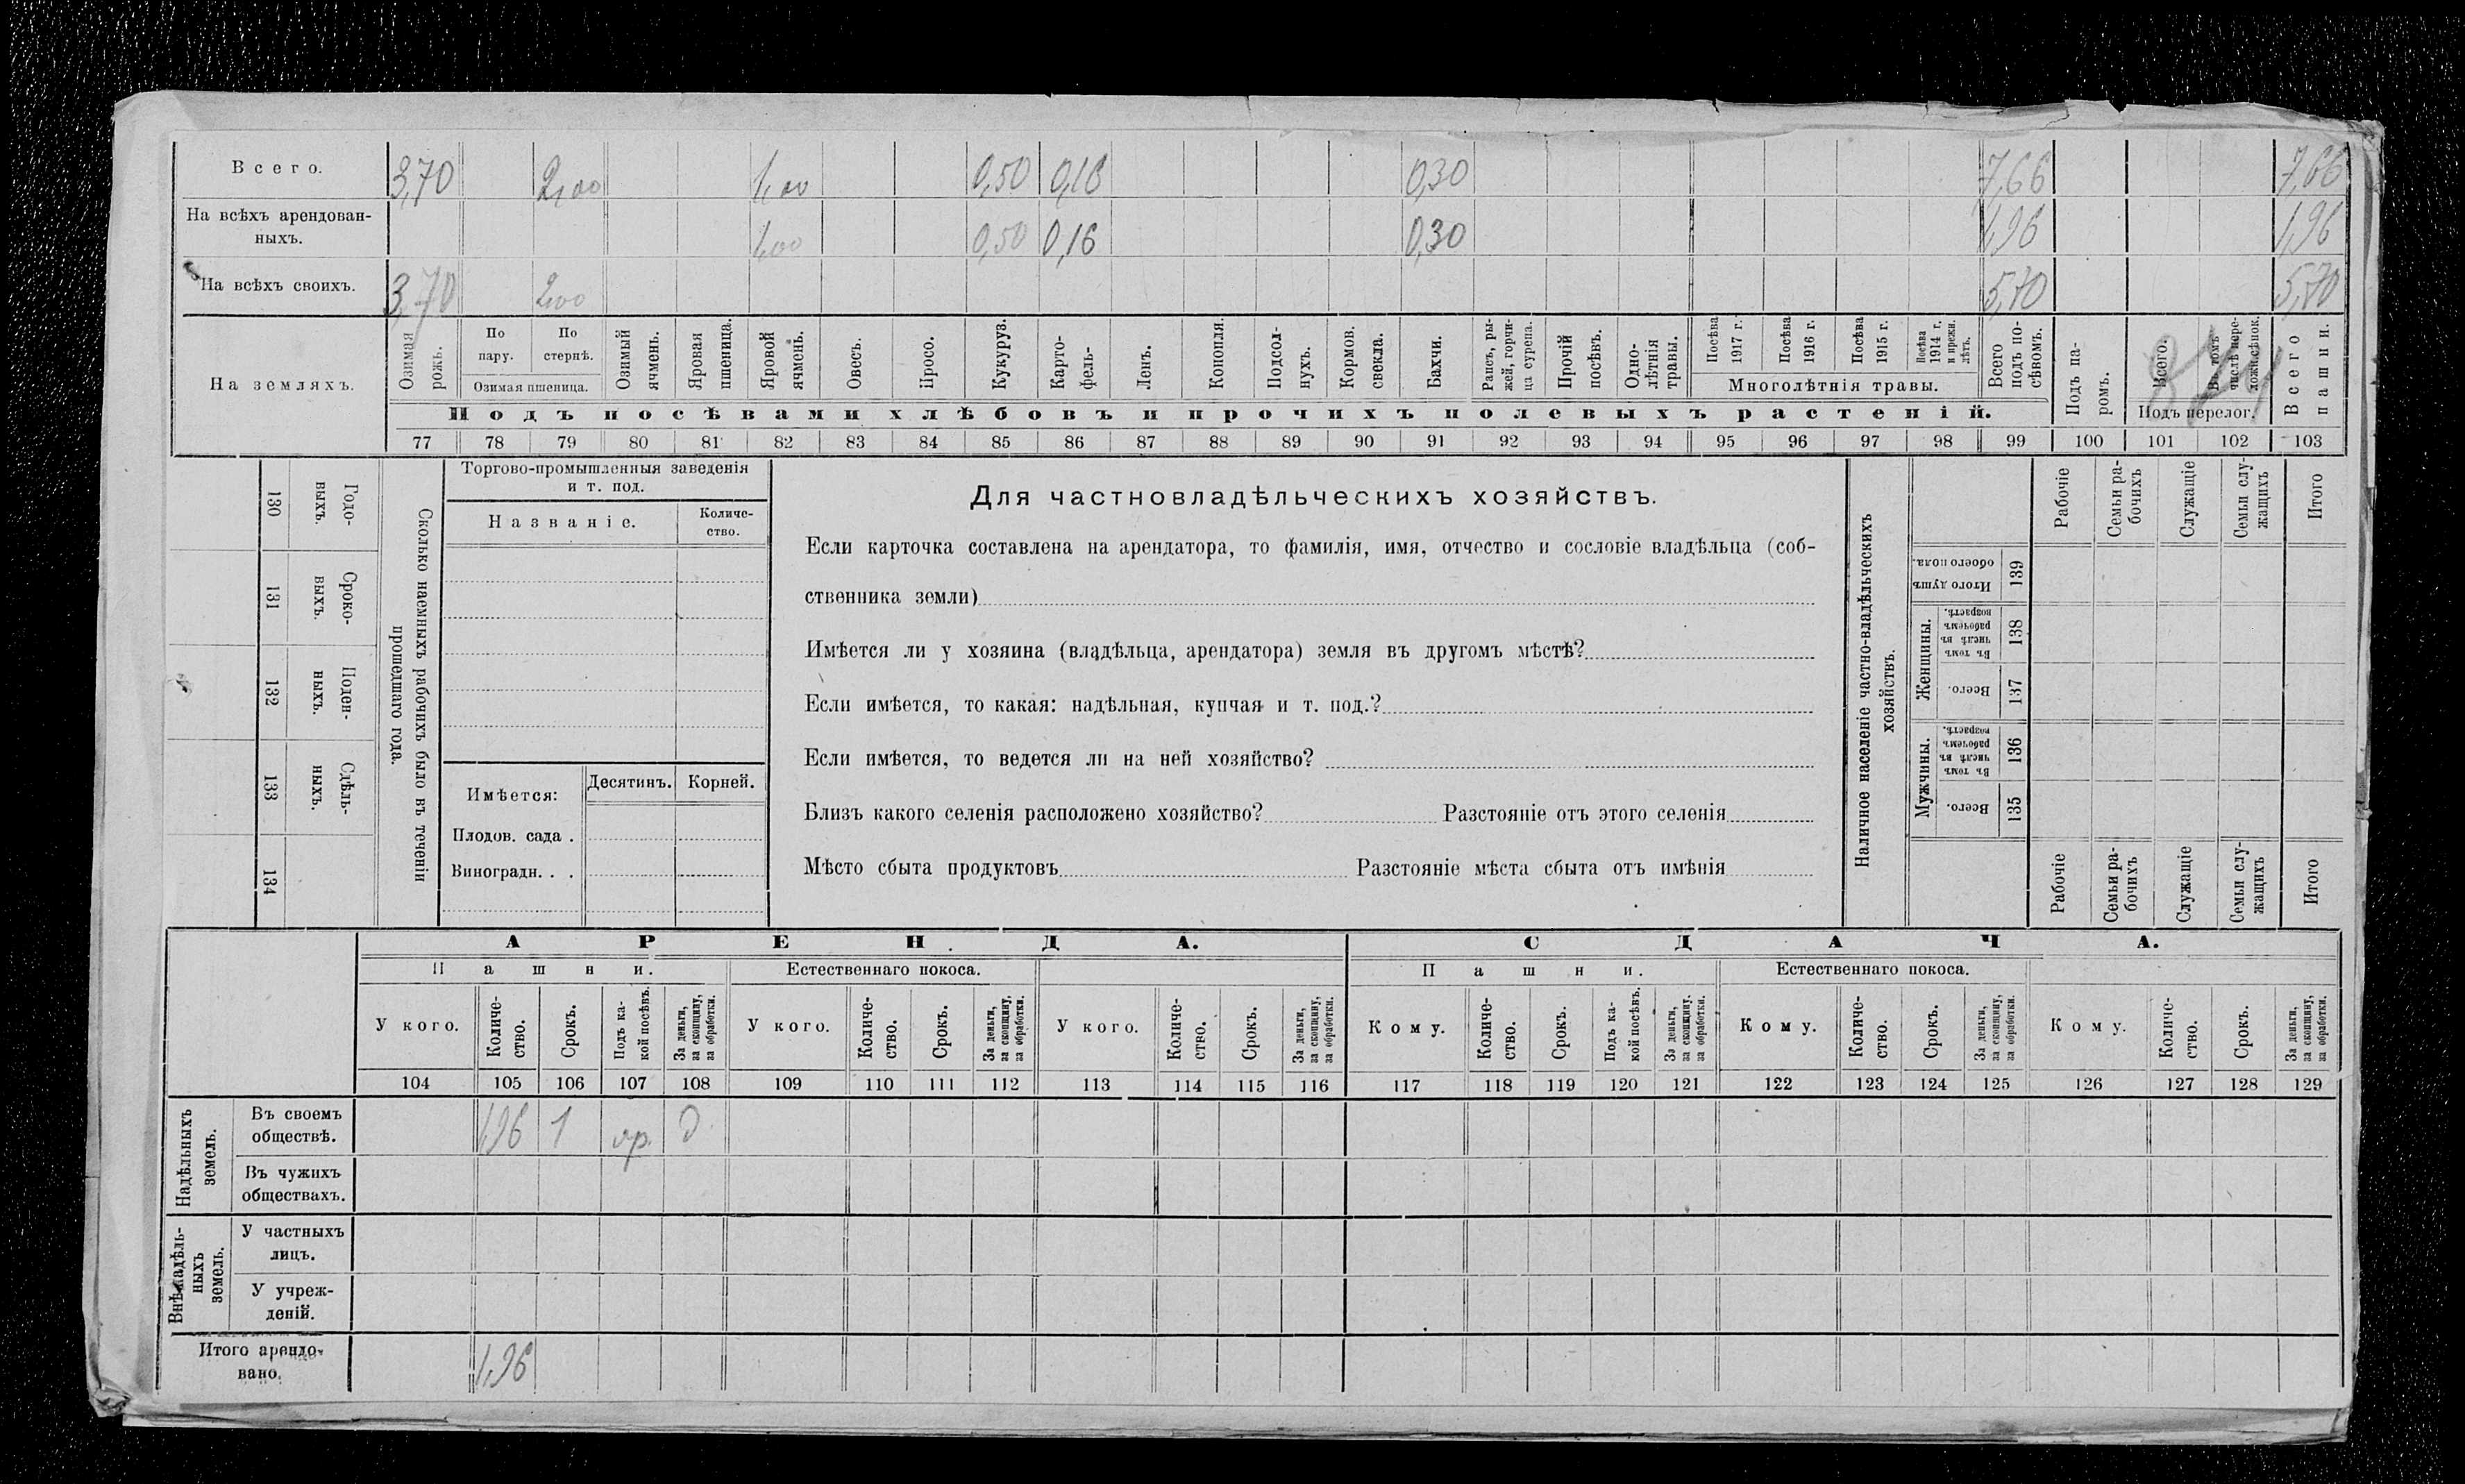 Всего. 3,70 2,00 1,00 0,50 0,16 0,30 7,66 7,66
На всѣхъ арендован-
ныхъ. 1,00 0,50 0,16 0,30 1,96 1,96
На всѣхъ своихъ. 3,70 2,00 5,70 5,70
На земляхъ.
Озимая рожь.
По пару.
По стернѣ.
Озимая пшеница.
Озимый ячмень.
Яровая пшеница.
Яровой ячмень.
Овесъ.
Просо.
Кукуруз.
Карто-
фель-
Ленъ.
Конопля.
Подсол-
нухъ.
Кормов.
свекла.
Бахчи.
Рапсъ, ры-
жей, горчи-
ца сурепа.
Прочій
посѣвъ.
Одно-
лѣтнія
травы.
Посѣва
1917 г.
Посѣва
1916 г.
Посѣва
1915 г.
Посѣва
1914 г.
и прежн.
лѣтъ.
Многолѣтнія травы.
Всего
подъ по-
сѣвомъ.
Подъ па-
ромъ.
Всего.
Въ томъ
числѣ пере-
Подъ перелог.
Всего
пашни.
Подъ посѣвами хлѣбовъ и прочихъ полевыхъ растеній.
77 78 79 80 81 82 83 84 85 86 87 88 89 90 91 92 93 94 95 96 97 98 99 100 101 102 103
130 Годо-
выхъ.
131 Сроко-
выхъ.
132 Поден-
ныхъ.
133 Сдѣль-
ныхъ.
134
Сколько наемныхъ рабочихъ было въ теченіи
прошедшаго года.
Торгово-промышленныя заведенія
и т. под.
Названіе.
Количе-
ство.
Имѣется:
Десятинъ. Корней.
Плодов. сада .
Виноградн. . .
Для частновладѣльческихъ хозяйствъ.
Если карточка составлена на арендатора, то фамилія, имя, отчество и сословіе владѣльца (соб-
ственника земли)
Имѣется ли у хозяина (владѣльца, арендатора) земля въ другомъ мѣстѣ?
Если имѣется, то какая: надѣльная, купчая и т. под.?
Если имѣется, то ведется ли на ней хозяйство?
Близъ какого селенія расположено хозяйство? Разстояніе отъ этого селенія
Мѣсто сбыта продуктовъ Разстояніе мѣста сбыта отъ имѣнія
Наличное населеніе частно-владѣльческихъ
хозяйствъ.
Рабочіе
Семьи ра-
бочихъ
Служащіе
Семьи слу-
жащихъ
Итого
Итого душъ
обоего пола.
139
Женщины.
Въ томъ
числѣ въ
рабочемъ
возрастѣ.
138
Всего.
137
Мужчины.
Въ томъ
числѣ въ
рабочемъ
возрастѣ.
136
Всего.
135
Рабочіе
Семьи ра-
бочихъ
Служащіе
Семьи слу-
жащихъ
Итого
АРЕНДА. СДАЧА.
Пашни. Естественнаго покоса. Пашни. Естественнаго покоса.
У кого.
Количе-
ство.
Срокъ.
Подъ ка-
кой посѣвъ.
За деньги,
за скопщину,
за обработки.
У кого.
Количе-
ство.
Срокъ.
За деньги,
за скопщину,
за обработки.
У кого.
Количе-
ство.
Срокъ.
За деньги,
за скопщину,
за обработки.
Кому.
Количе-
ство.
Срокъ.
Подъ ка-
кой посѣвъ.
За деньги,
за скопщину.
за обработки.
Кому.
Количе-
ство.
Срокъ.
За деньги,
за скопщину,
за обработки.
Кому.
Количе-
ство.
Срокъ.
За деньги,
за скопщину,
за обработки.
104 105 106 107 108 109 110 111 112 113 114 115 116 117 118 119 120 121 122 123 124 125 126 127 128 129
Надѣльныхъ
земель.
Въ своемъ
обществѣ. 1,96 1 яр. д.
Въ чужихъ
обществахъ.
Внѣнадѣль-
ныхъ
земель.
У частныхъ
лицъ.
У учреж-
деній.
Итого арендо-
вано. 1,96